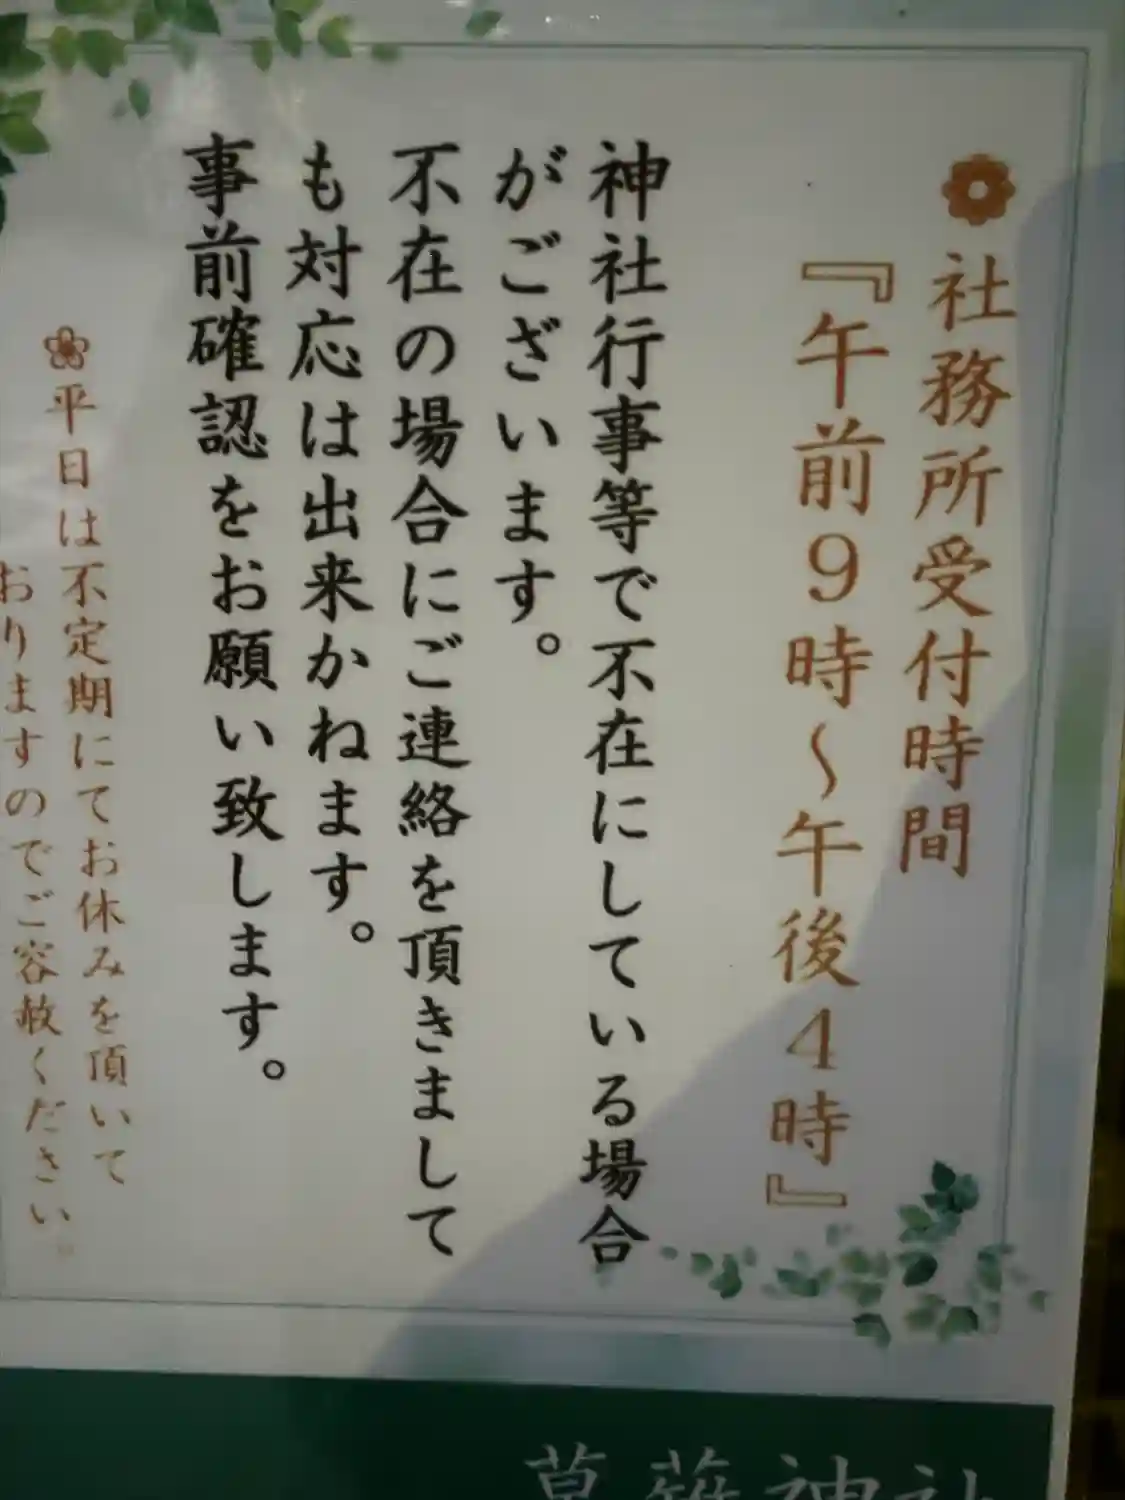 社務所受付時間
『午前9時〜午後4時』
神社行事等で不在にしている場合
がございます。
不在の場合にご連絡を頂きまして
も対応は出来かねます。
事前確認をお願い致します。
平日は不定期にてお休みを頂いて
おりますのでご容赦ください。
草薙神社